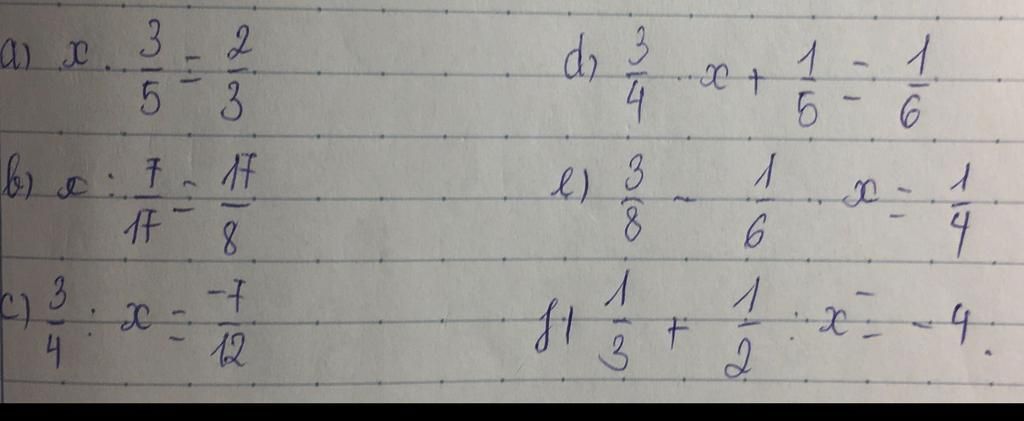 a) x · 3/5 = 2/3
d) 3/4 · x + 1/5 = 1/6
b) x : 7/17 = 17/8
e) 3/8 - 1/6 · x = 1/4
c) 3/4 : x = -7/12
f) 1/3 + 1/2 : x = -4.